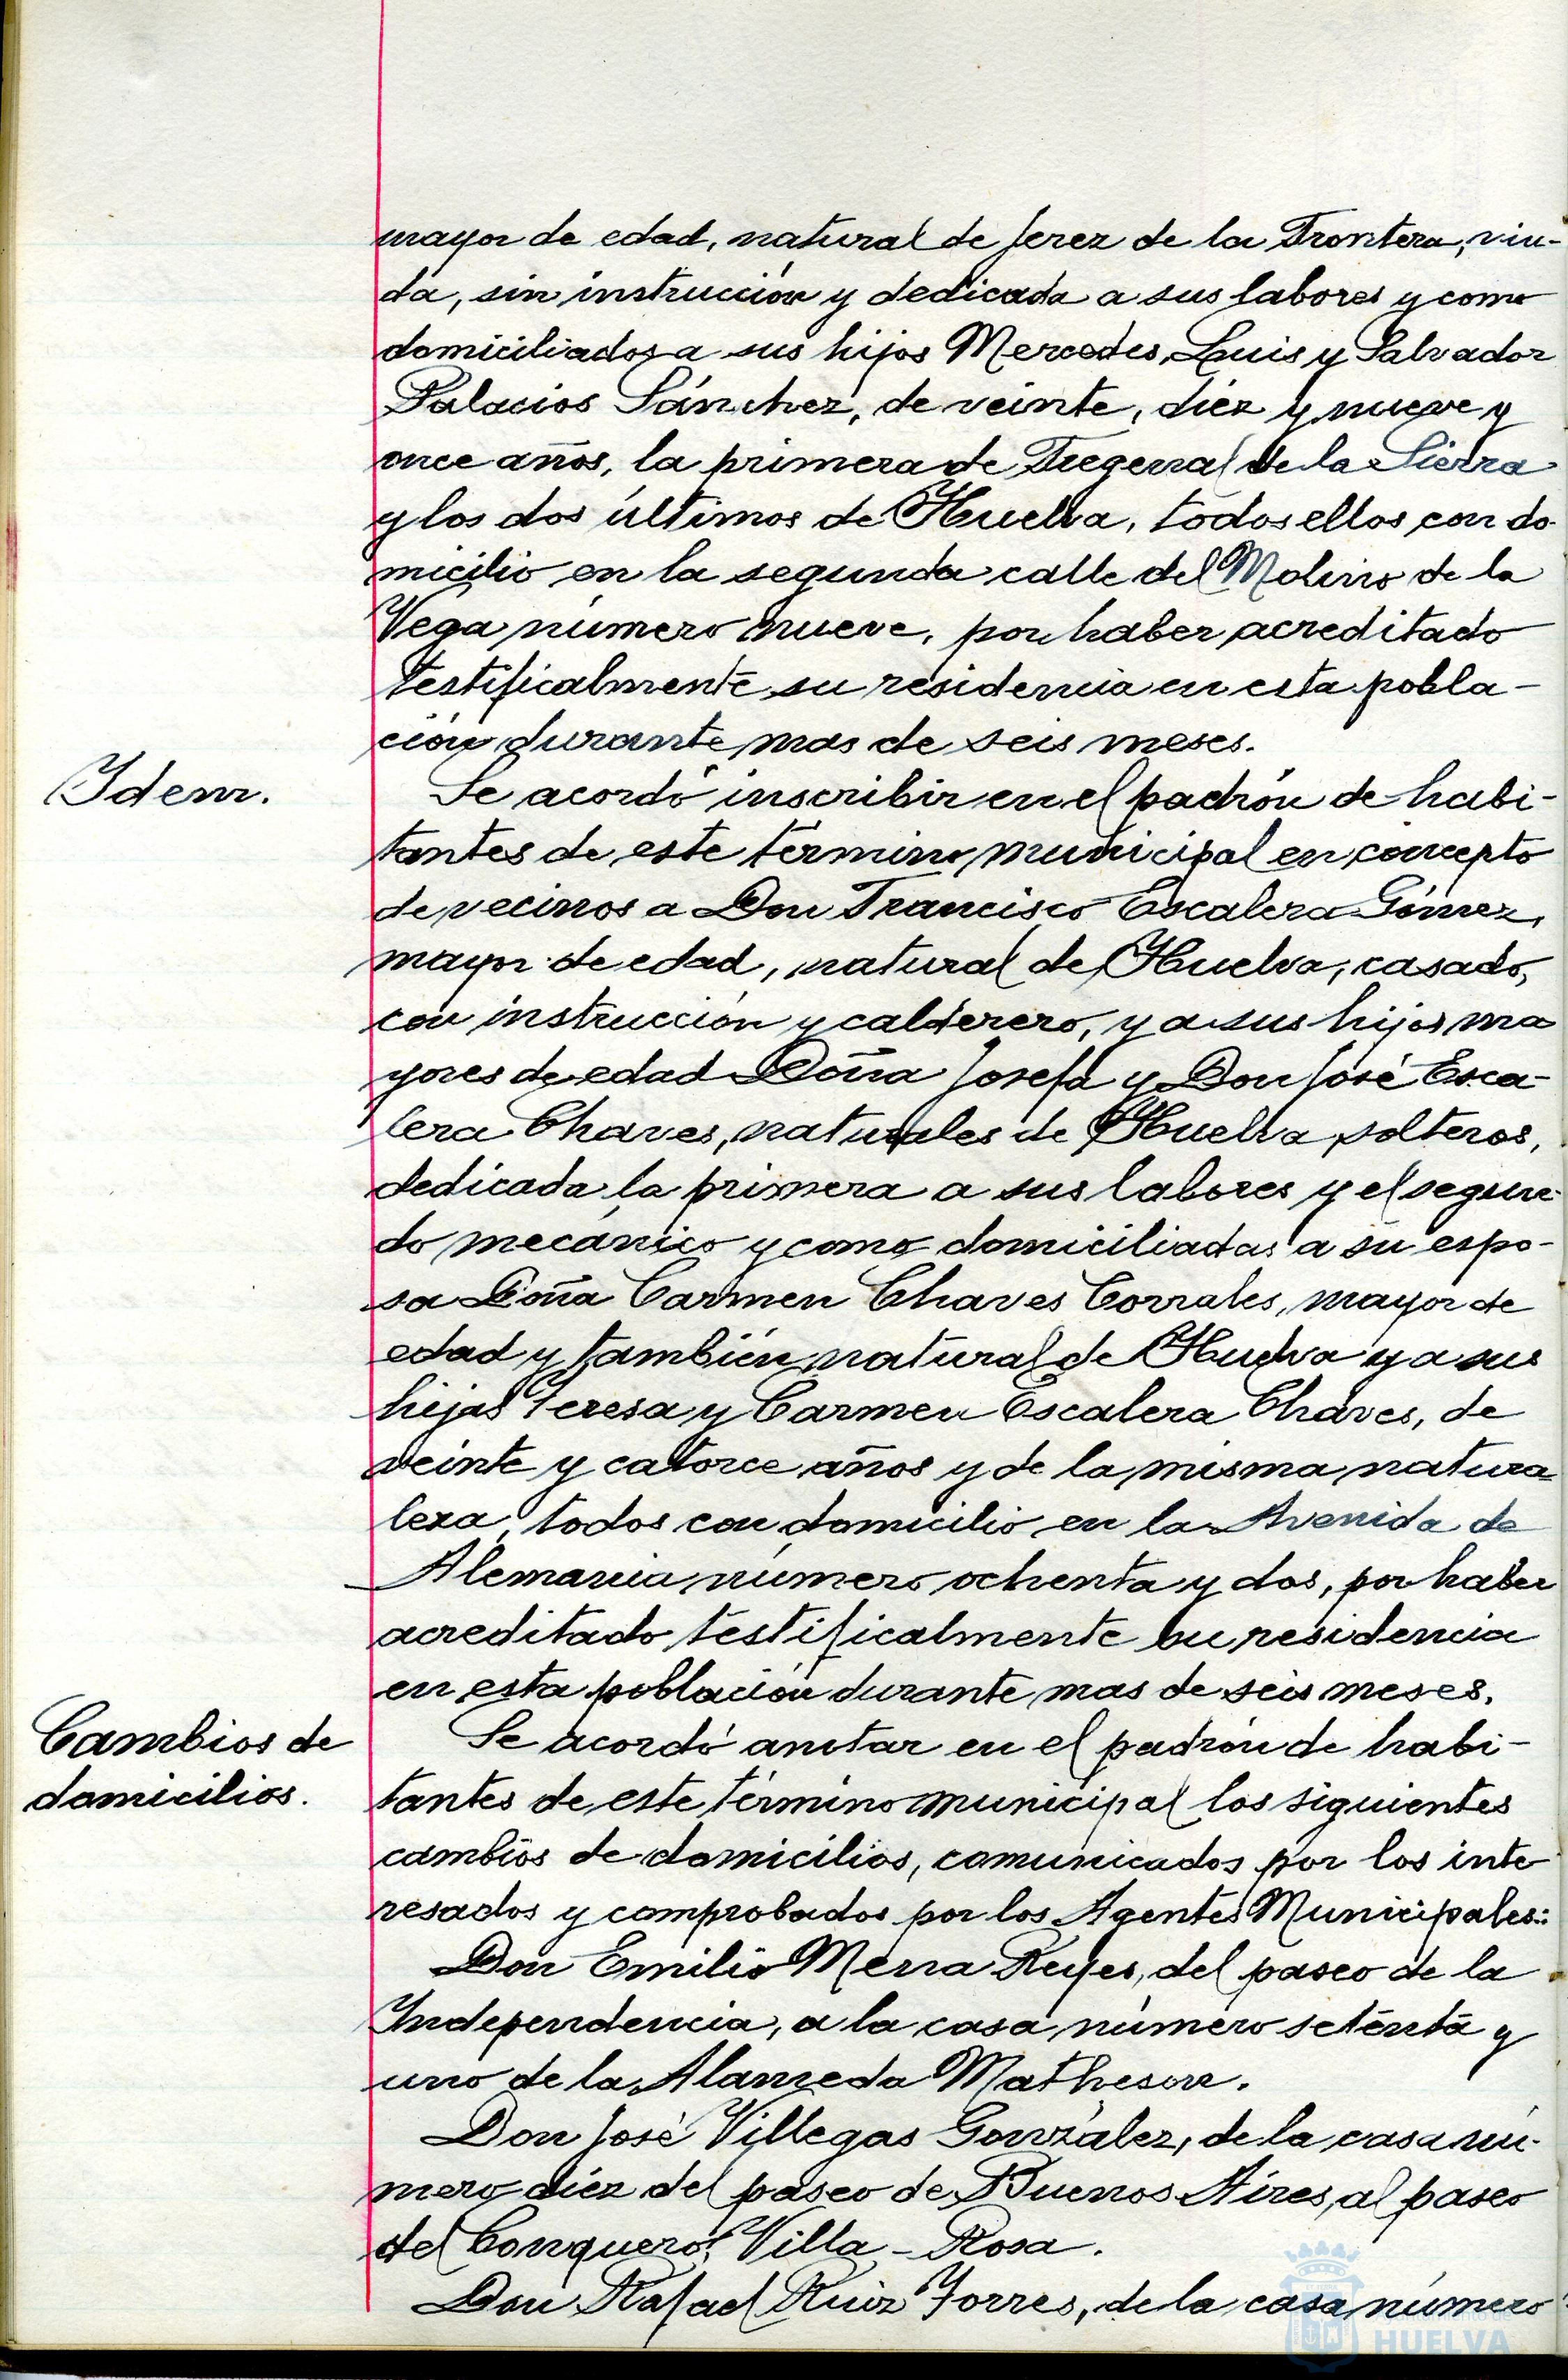 mayor de edad, natural de Jerez de la Frontera, viu-
da, sin instrucción y dedicada a sus labores y como
domiciliados a sus hijos Mercedes, Luis y Salvador
Palacios Sánchez, de veinte, diez y nueve y
once años, la primera de Fregenal de la Sierra
y los dos últimos de Huelva, todos ellos con do-
micilio en la segunda calle del Molino de la
Vega número nueve, por haber acreditado
testificalmente su residencia en esta pobla-
ción durante mas de seis meses.
Idem.
Se acordó inscribir en el padrón de habi-
tantes de este término municipal en concepto
de vecinos a Don Francisco Escalera Gómez,
mayor de edad, natural de Huelva, casado,
con instrucción y calderero, y a sus hijos ma
yores de edad Doña Josefa y Don José Esca-
lera Chaves, naturales de Huelva, solteros,
dedicada la primera a sus labores y el segun-
do mecánico y como domiciliadas a su espo-
sa Doña Carmen Chaves Corrales, mayor de
edad y también natural de Huelva y a sus
hijas Teresa y Carmen Escalera Chaves, de
veinte y catorce años y de la misma natura
leza, todos con domicilio en la Avenida de
Alemania número ochenta y dos, por haber
acreditado testificalmente su residencia
en esta población durante mas de seis meses.
Cambios de
domicilios.
Se acordó anotar en el padrón de habi-
tantes de este término municipal los siguientes
cambios de domicilios, comunicados por los inte
resados y comprobados por los Agentes Municipales:
Don Emilio Merra Reyes, del paseo de la
Independencia, a la casa número setenta y
uno de la Alameda Matheson.
Don José Villegas González, de la casa nú-
mero diez del paseo de Buenos Aires, al paseo
del Conquero, Villa-Rosa.
Don Rafael Ruiz Torres, de la casa número
HUELVA